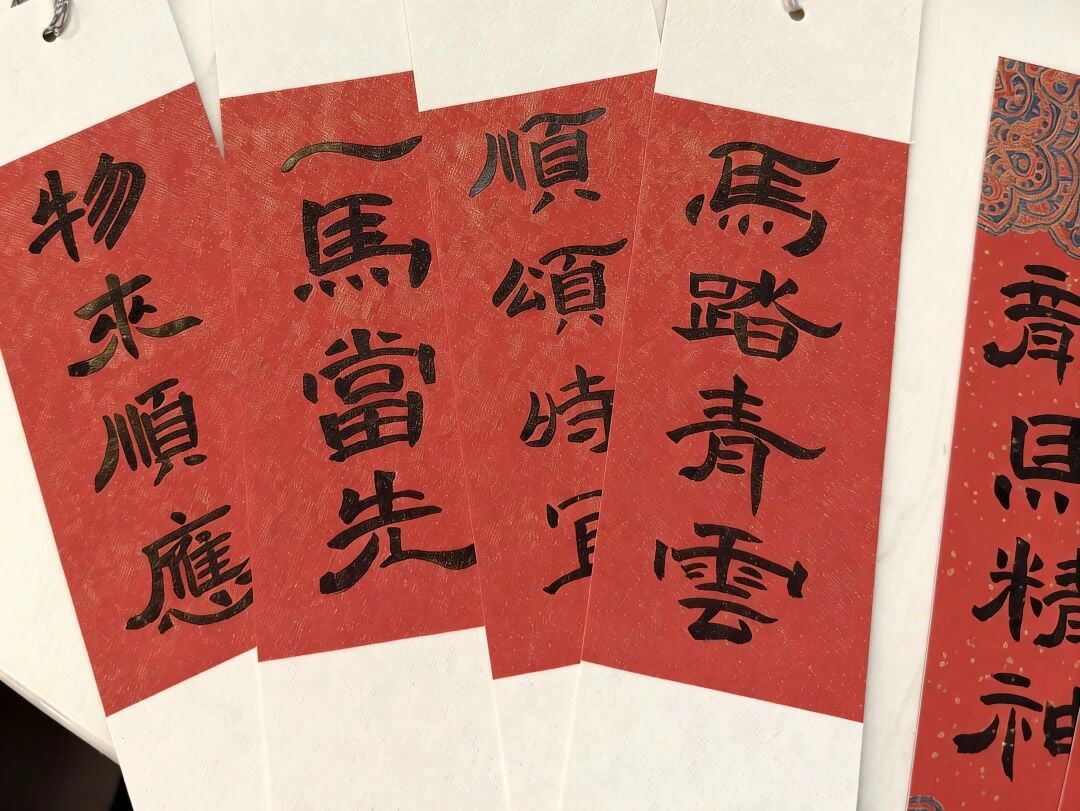 物來順應
一馬當先
順頌時宜
馬踏青雲
龍馬精神